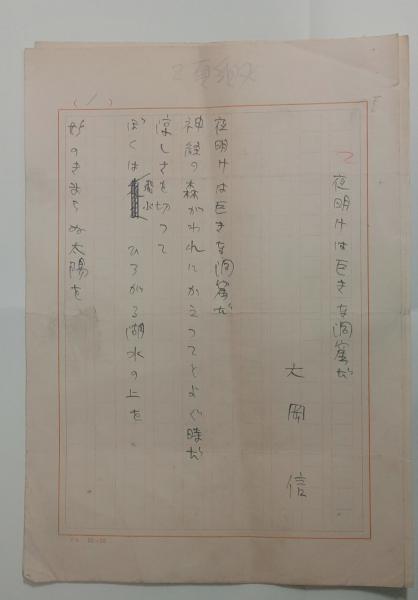 (1)
夜明けは巨きな洞窟だ
大岡信
夜明けは巨きな洞窟だ
神経の森がわれにかえつてそよぐ時だ
涼しさを切つて
ぼくは ひろがる湖水の上を
のきまらぬ太陽を